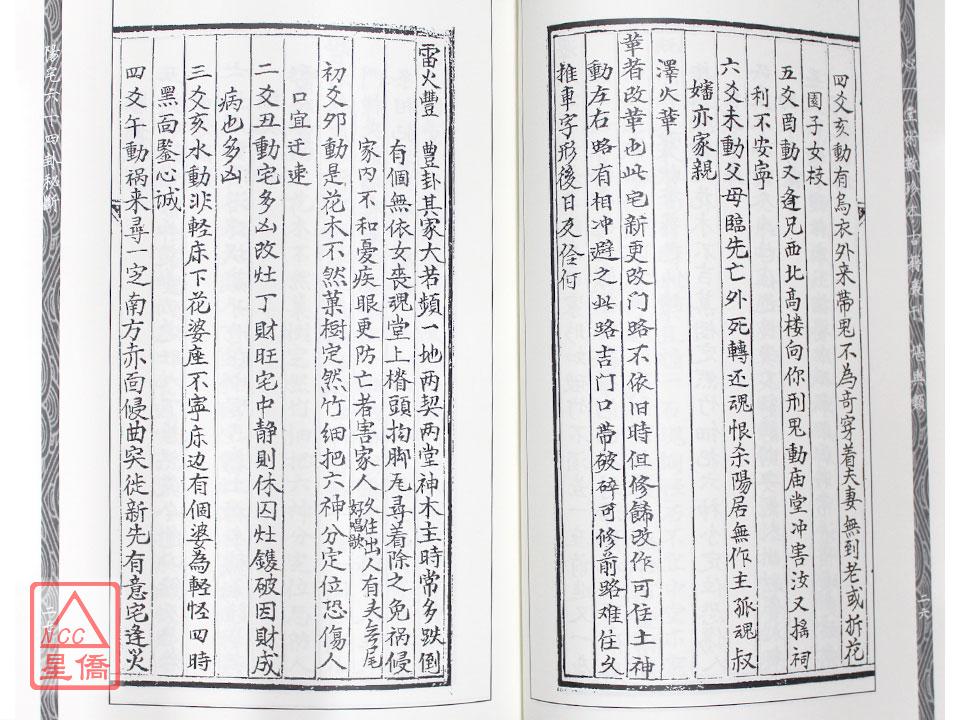 四爻亥動有烏衣外来带鬼不為奇穿着夫妻無到老或拆花
園子女枝
五爻酉動又逢兄西北高楼向你刑鬼動庙堂冲害汝又搖祠
利不安寧
六爻未動父母臨先亡外死轉还魂恨杀陽居無作主孤魂叔
嬸亦家親
澤火革
革者改革也此宅新更改门路不依旧時但修餙改作可住土神
動左右路有相冲避之此路吉门口带破碎可修前路难住久
推車字形後日及合何
二六
雷火豐 豊卦其家大若頻一地两契两堂神木主時常多跌倒
有個無依女喪魂堂上楷頭拘脚瓦尋着除之免祸侵
家内不和憂疾眼更防亡者害家人久住出人有头無尾
好唱歌
初爻夘動是花木不然菓樹定然竹细把六神分定位恐傷人
口宜迁速
二爻丑動宅多凶改灶丁財旺宅中静則休囚灶鑊破因財成
病也多凶
三爻亥水動非軽床下花婆座不寧床边有個婆為軽怪四時
黑面鑒心诚
四爻午動祸来尋一定南方亦面侵曲突徙新先有意宅逢火
陽宅六十四卦秘斷
NCC
星僑